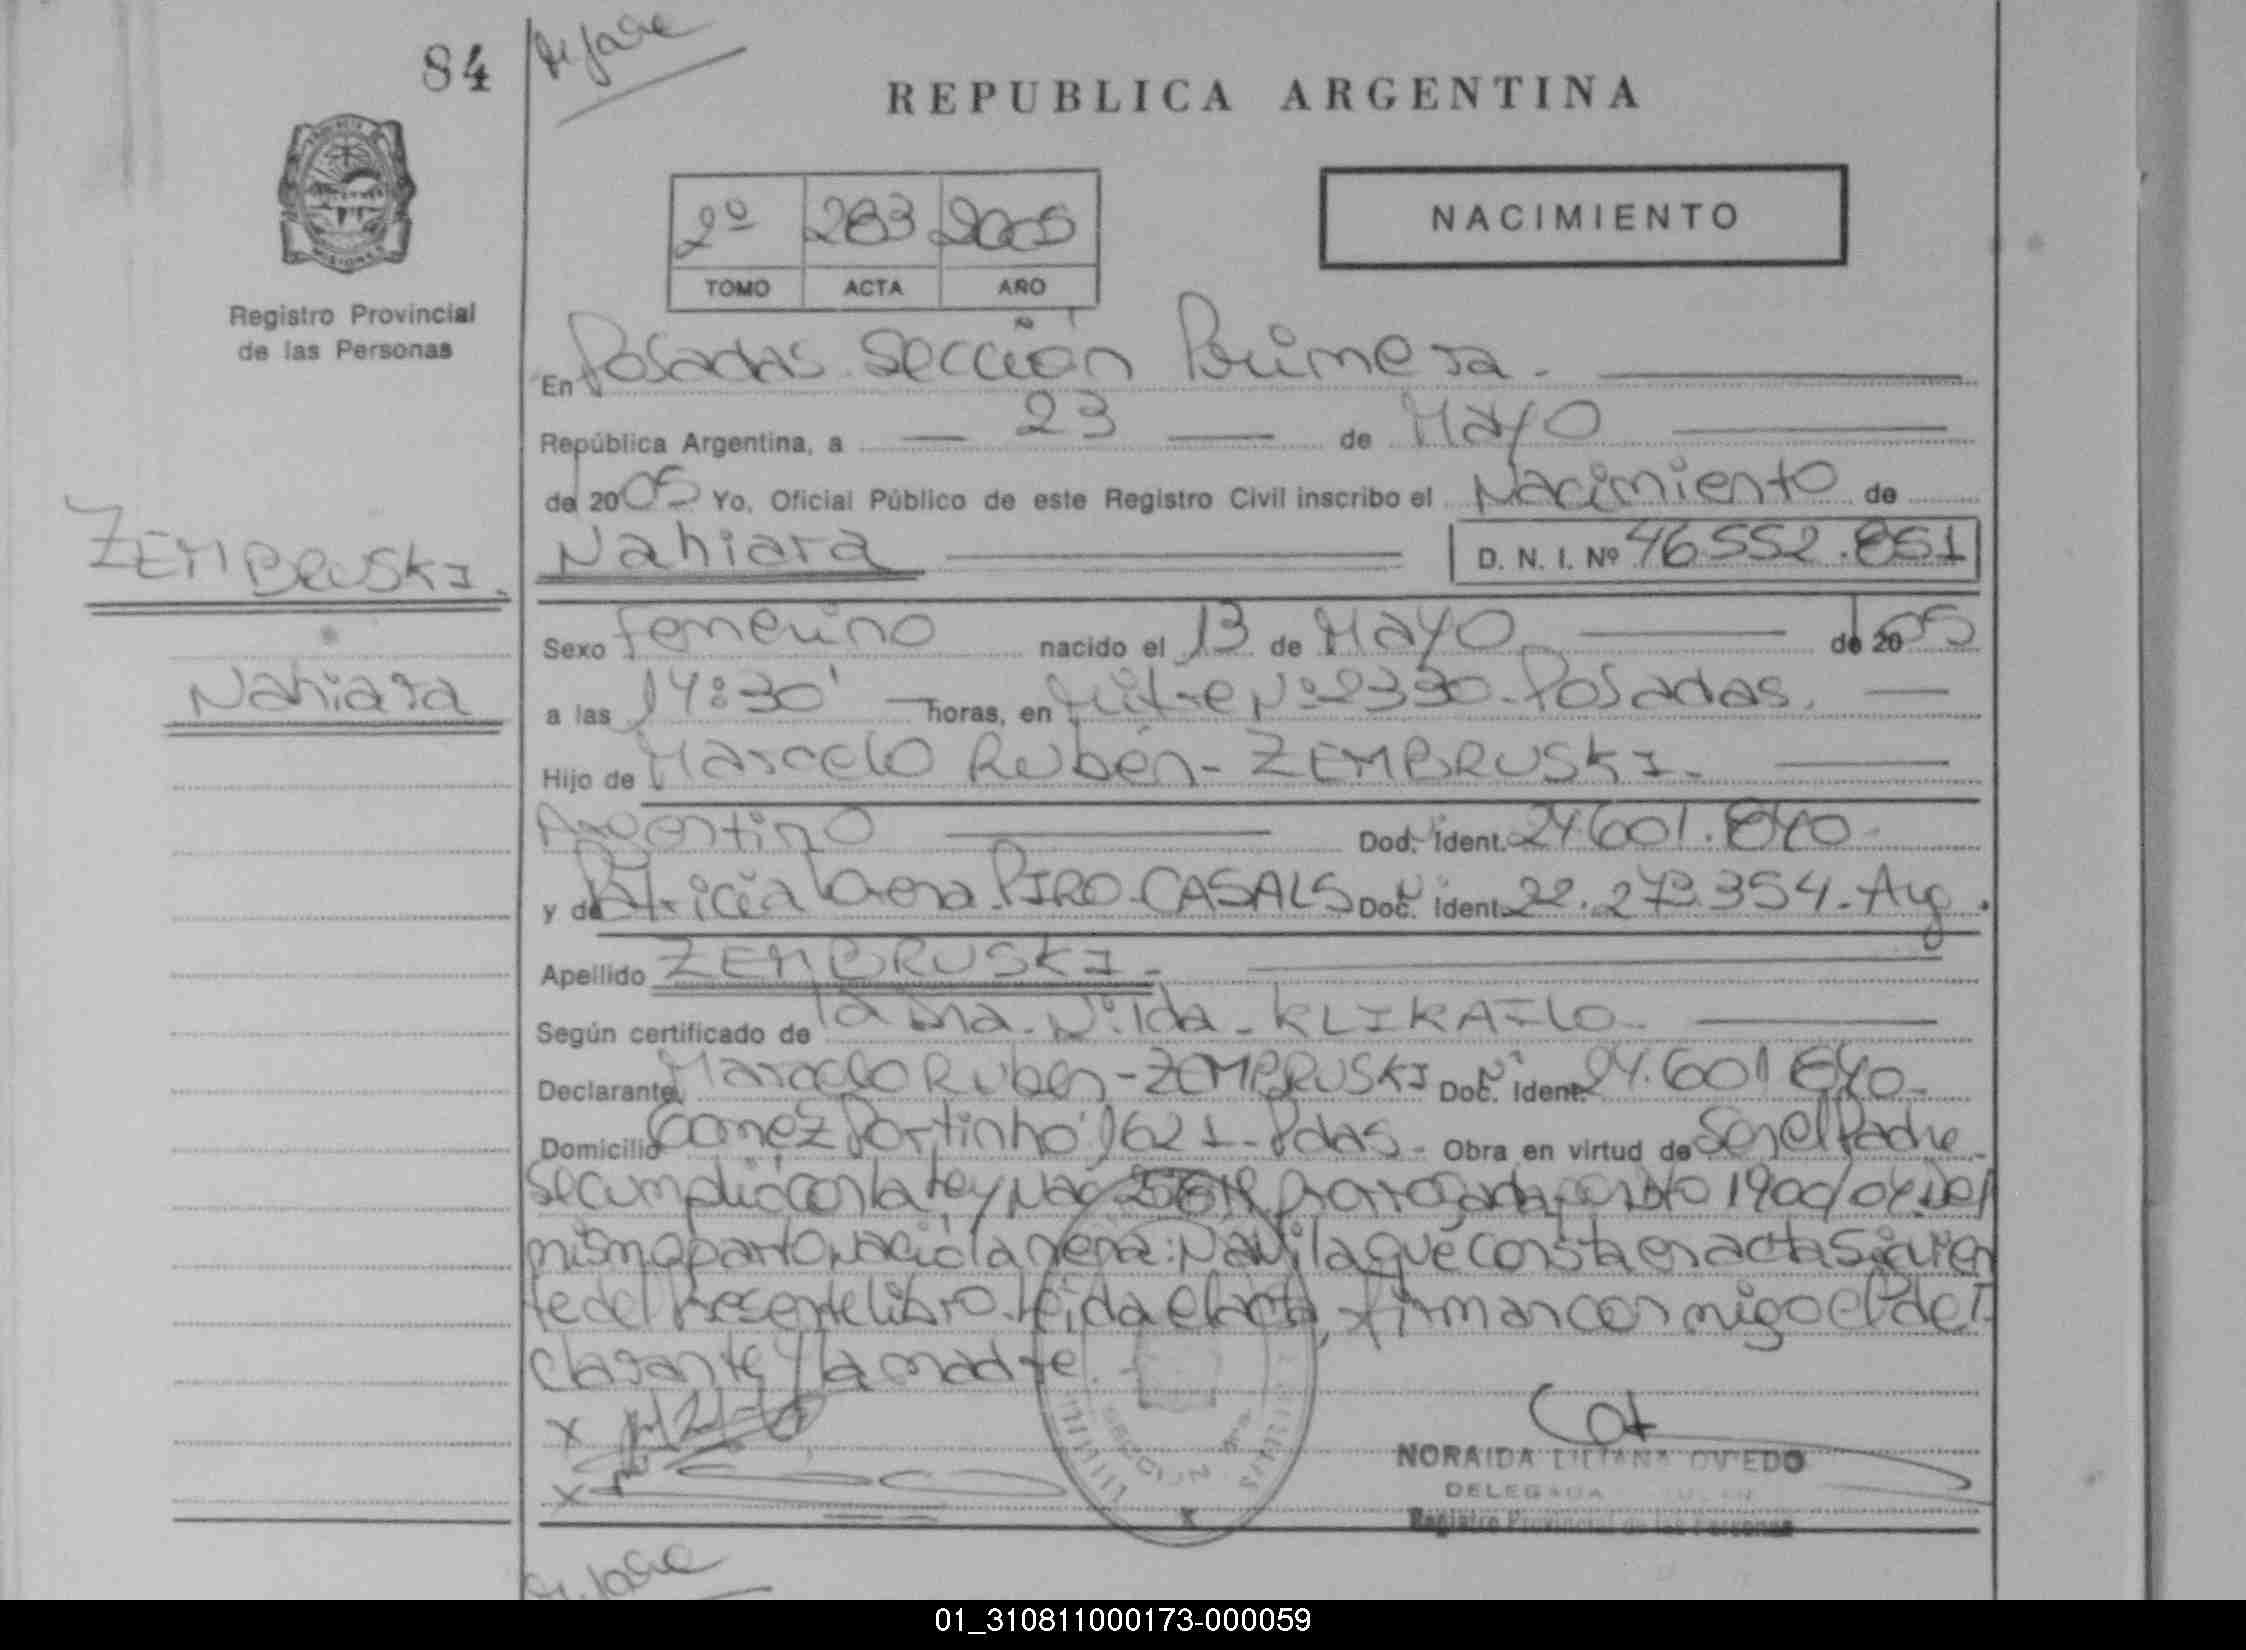 84
REPUBLICA ARGENTINA
2º 283 2005
TOMO ACTA AÑO
NACIMIENTO
Registro Provincial
de las Personas
En Posadas Sección Primera.
República Argentina, a 23 de Mayo
de 2005 Yo, Oficial Público de este Registro Civil inscribo el Nacimiento de
Nahiara D. N. I. Nº 46.552.851
ZEMBRUSKI.
Nahiara
Sexo femenino nacido el 13 de Mayo de 2005
a las 14:30' horas, en Mitre Nº 2330-Posadas.
Hijo de Marcelo Rubén-ZEMBRUSKI.
Argentino Doc. Ident. 24.601.840
y de Patricia Lorena PIRO-CASALS Doc. Ident. 22.273.354-Arg.
Apellido ZEMBRUSKI.
Según certificado de la Dra. Nida-KLIKAILO.
Declarante Marcelo Rubén-ZEMBRUSKI Doc. Ident. 24.601.840.
Domicilio Gomez Portinho 1621-Pdas. Obra en virtud de Ser el Padre.
Se cumplió con la Ley Nac prorrogada por Dto 1900/04. Del
mismo parto nació la nena: que consta en acta siguien
te del Presente libro. Leída el acta, firman conmigo el de
clarante y la madre.
NORAIDA LILIANA OVIEDO
DELEGADA
Registro Provincial de las Personas
01_310811000173-000059